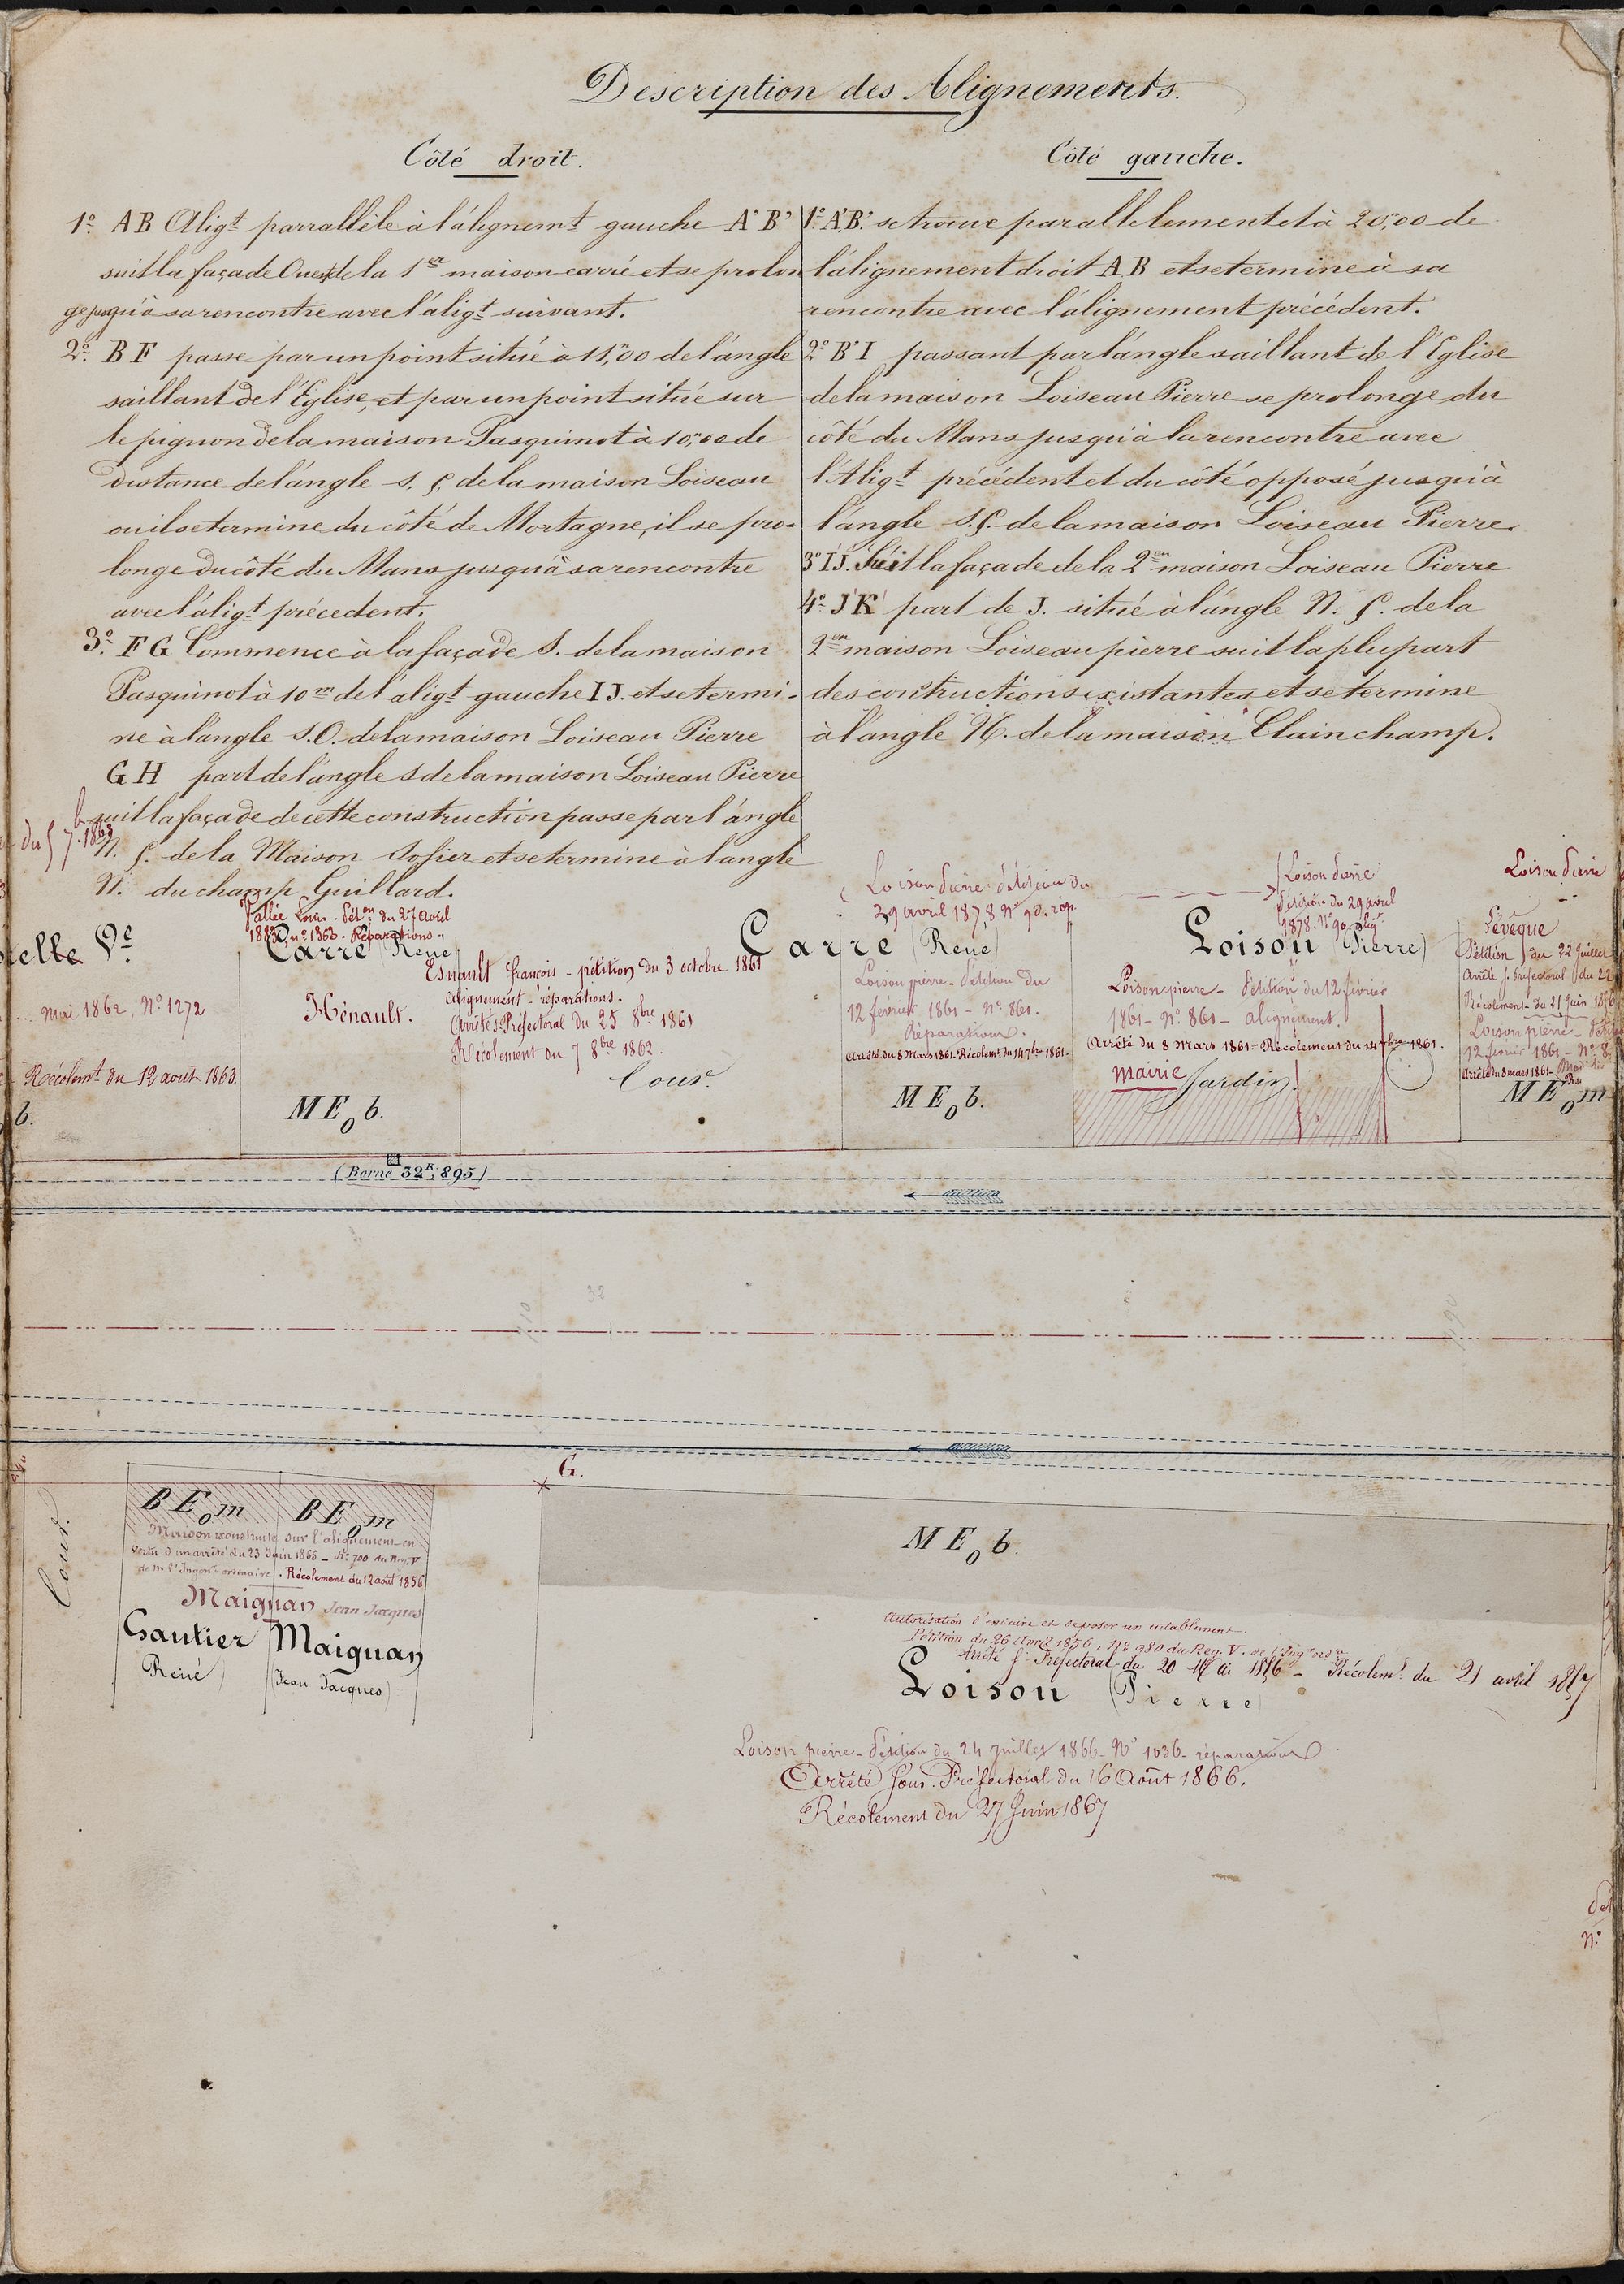 Description des Alignements.
Côté droit.
1º. AB Aligt parrallèle à l'alignemt gauche A'B'
suit la façade Ouest de la 1er maison carré et se prolon
ge jusqu'à sa rencontre avec l'aligt suivant.
2º. BF passe par un point situé à 11,m00 de l'angle
saillant de l'Eglise, et par un point situé sur
le pignon de la maison Pasquinot à 10,m00 de
distance de l'angle S. E. de la maison Loiseau
ou il se termine du côté de Mortagne, il se pro-
longe du côté du Mans jusqu'à sa rencontre
avec l'aligt précedent.
3º. FG Commence à la façade S. de la maison
Pasquinot à 10m de l'aligt gauche IJ. et se termi-
ne à l'angle S.O. de la maison Loiseau Pierre
GH part de l'angle S de la maison Loiseau Pierre
suit la façade de cette construction passe par l'angle
N. E. de la Maison Sofier et se termine à l'angle
N. du champ Guillard.
Côté gauche.
1º A'B'. se trouve parallelement et à 20,m00 de
l'alignement droit AB et se termine à sa
rencontre avec l'alignement précédent.
2º B'I passant par l'angle saillant de l'Eglise
de la maison Loiseau Pierre se prolonge du
côté du Mans jusqu'à la rencontre avec
l'Aligt précédent et du côté opposé jusqu'à
l'angle S.E. de la maison Loiseau Pierre.
3º I'J'. Suit la façade de la 2en maison Loiseau Pierre
4º. J'K' part de J. situé à l'angle N. E. de la
2en maison Loiseau pierre suit la plupart
des constructions existantes et se termine
à l'angle N. de la maison Clainchamp.
du 5 7b. 1863
telle Ve
mai 1862, Nº 1272
Récolemt du 12 août 1863.
b.
Vallée Louis. Péton du 27 avril
1883, nº 1362. Réparations.
Carré (René)
Hénault.
ME0b.
Esnault françois - pétition du 3 octobre 1861
alignement - réparations -
Arrêté s. Préfectoral du 25 8bre 1861
Récolement du 7 8bre 1862.
Cour.
Carre (René)
Loison Pierre Pétition du
29 avril 1878 Nº 90. rép.
Loison pierre - Pétition du
12 février 1861 - Nº 861.
Réparations.
Arrêté du 8 Mars 1861. Récolemt du 14 7bre 1861.
ME0b.
Loison Pierre
Pétition du 29 avril
1878. Nº 90. aligt
Loison (Pierre)
Loison pierre - Pétition du 12 février
1861 - Nº 861 - alignement.
Arrêté du 8 Mars 1861 - Récolement du 14 7bre 1861.
mairie
Jardin.
Loison Pierre
Lévêque
Pétition du 22 Juillet
Arrêté s. préfectoral du 22
Récolement du 21 Juin
Loison pierre -
12 février 1861 - Nº 8
Arrêté du 8 mars 1861 -
ME0m
(Borne 32K,895)
32
G.
Cour.
BE0m
BE0m
Maison reconstruite sur l'alignement en
vertu d'un arrêté du 23 Juin 1855 - Nº 700 du Reg. V
de Mr l'Ingenr ordinaire. Récolement du 12 août 1856
Maignan Jean Jacques
Gautier
René
Maignan
(Jean Jacques)
ME0b.
Autorisation d'enduire et deposer un entablement.
Pétition du 26 Avril 1856, Nº 980 du Reg. V. de l'Ingr ordre
Arrêté s. Préfectoral du 20 Mai 1856 - Récolemt du 21 avril 1857
Loison (Pierre)
Loison pierre - Pétition du 24 Juillet 1866 - Nº 1036 - réparations
Arrêté Sous-Préfectoral du 16 Août 1866.
Récolement du 27 Juin 1867
N.º